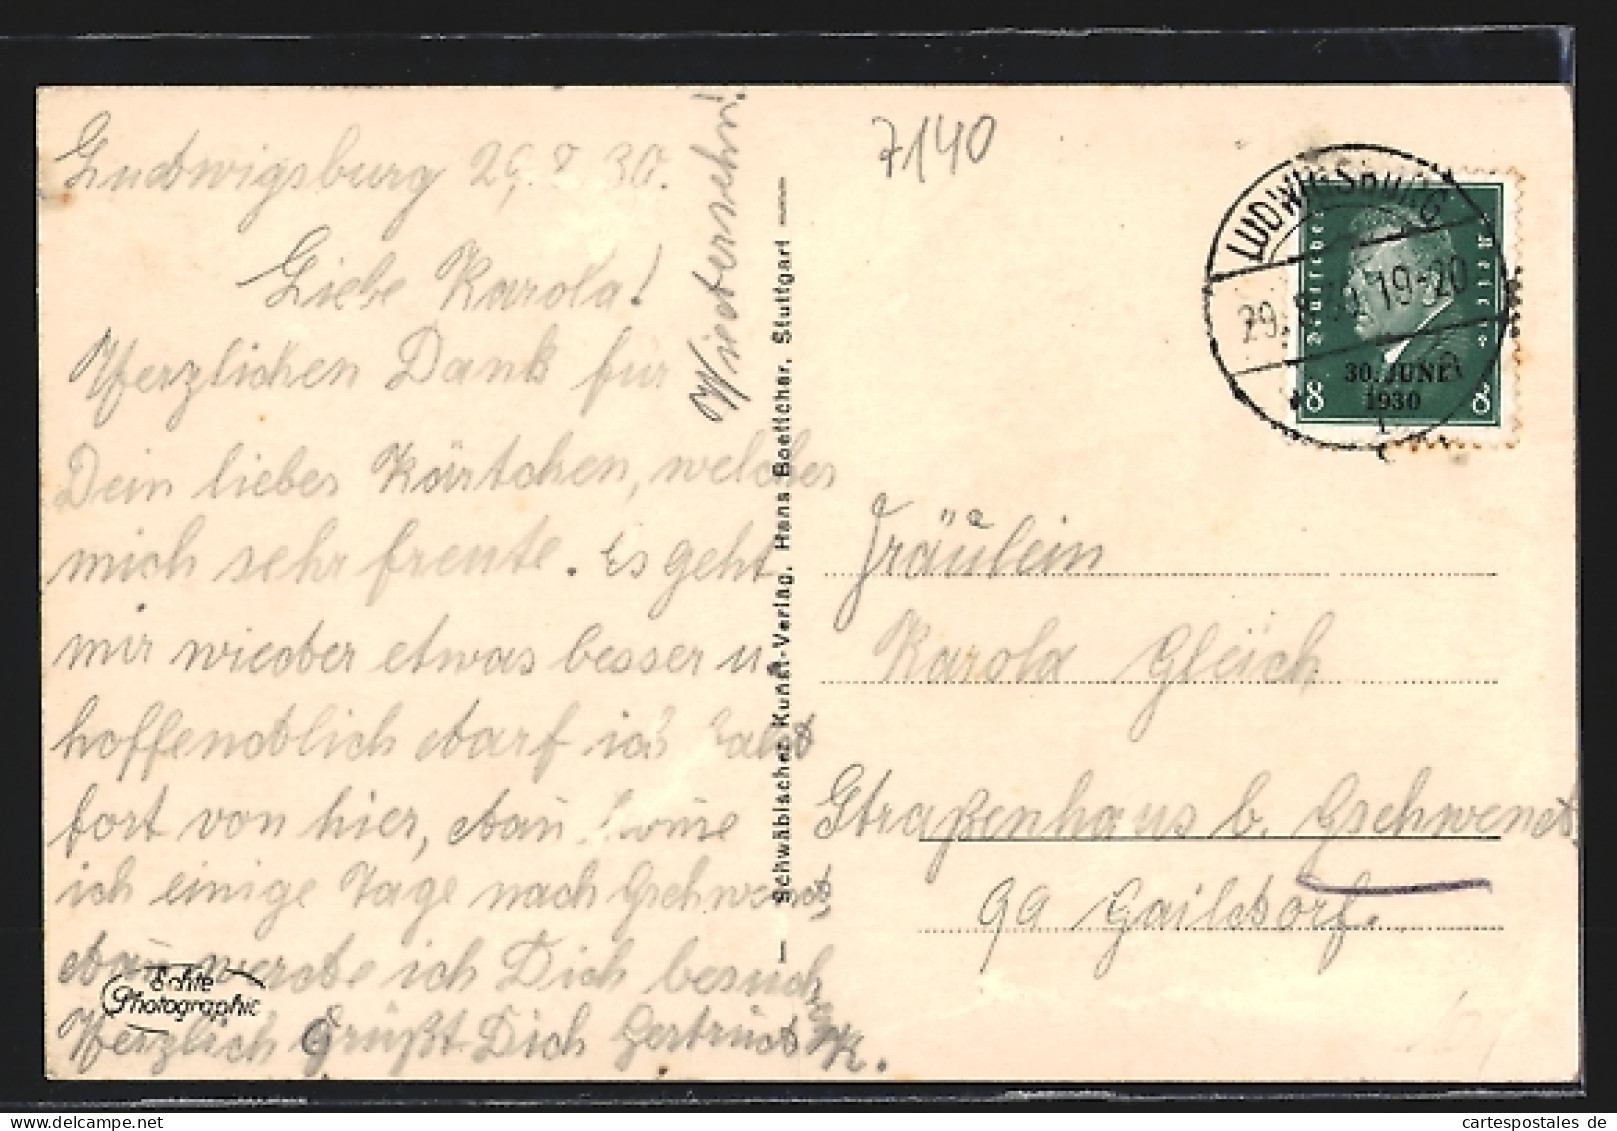 Ludwigsburg 29. 8. 30.
Liebe Karola!
Herzlichen Dank für
Dein liebes Kärtchen, welches
mich sehr freute. Es geht
mir wieder etwas besser u
hoffendlich darf ich bald
fort von hier, dan
ich einige Tage nach Gschwend,
dan werde ich Dich besuch
Herzlich Grüßt Dich Gertrud K.
Wiedersehn!
— Schwäbischer Kunst-Verlag, Hans Boettcher, Stuttgart —
Echte
Photographie
7140
LUDWIGSBURG
29. 8. 30. 19-20
Deutsches Reich
30. JUNI
1930
8 8
Fräulein
Karola Gleich
Straßenhaus b. Gschwend
Gailsdorf.
cartespostales de